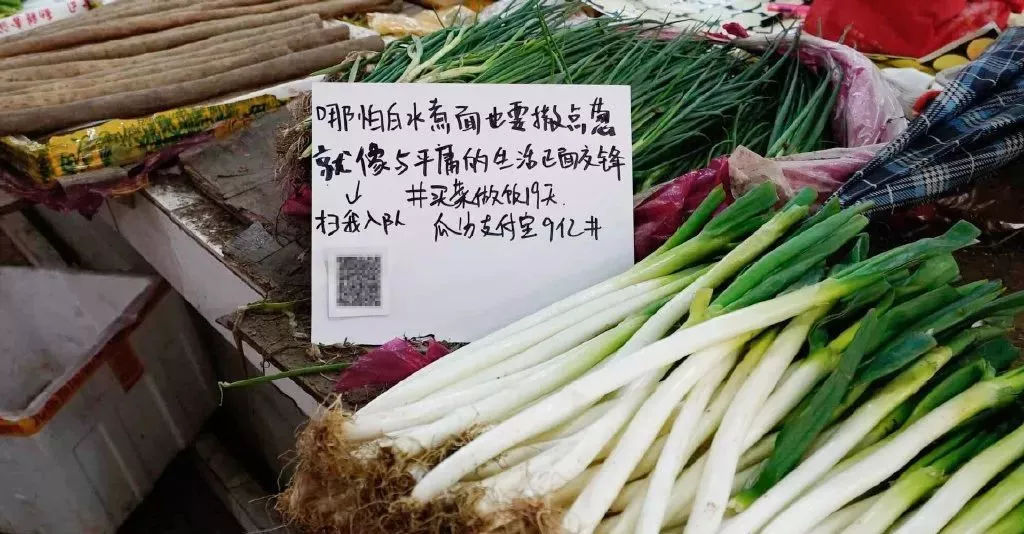 哪怕白水煮面也要撒点葱
就像与平庸的生活正面交锋
↓ #买菜做饭19天
扫我入队 瓜分支付宝9亿#